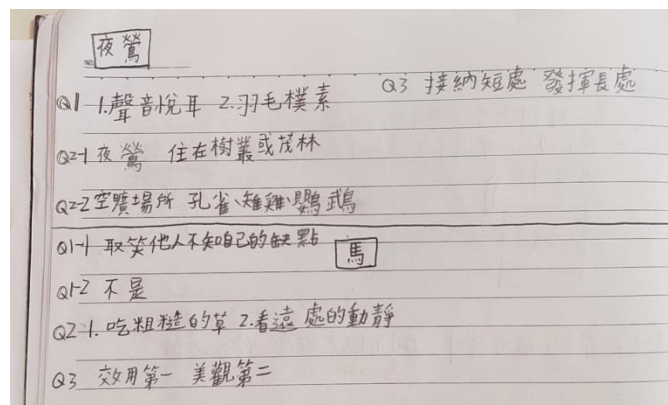 夜鶯
Q1 1.聲音悅耳 2.羽毛樸素
Q3 接納短處 發揮長處
Q2-1 夜鶯 住在樹叢或茂林
Q2-2 空曠場所 孔雀、雉雞、鸚鵡
Q1-1 取笑他人不知自己的缺點
馬
Q1-2 不是
Q2-1. 吃粗糙的草 2.看遠處的動靜
Q3 效用第一 美觀第二